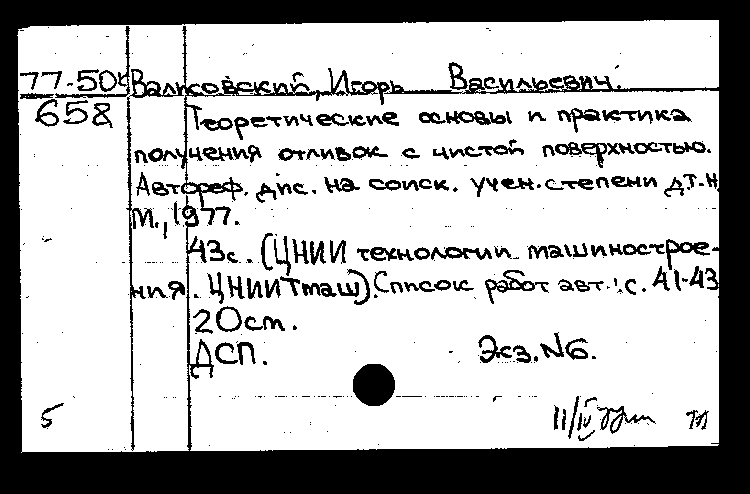 77-50 Валисовский, Игорь Васильевич.
658 Теоретические основы и практика
получения отливок с чистой поверхностью.
Автореф. дис. на соиск. учен. степени д.т.н
М., 1977.
43с. (ЦНИИ технологии машинострое-
ния. ЦНИИТмаш). Список работ авт.: с. 41-43
20см.
ДСП. Экз. N6.
5 11/IV